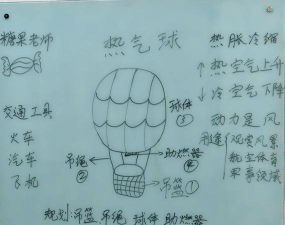 糖果老师
热气球
热胀冷缩
↑热空气上升
↓冷空气下降
动力是风
用途
观赏风景
航空体育
军事领域
交通工具
火车
汽车
飞机
球体
③
吊绳
②
助燃器
④
吊篮①
规划:吊篮 吊绳 球体 助燃器